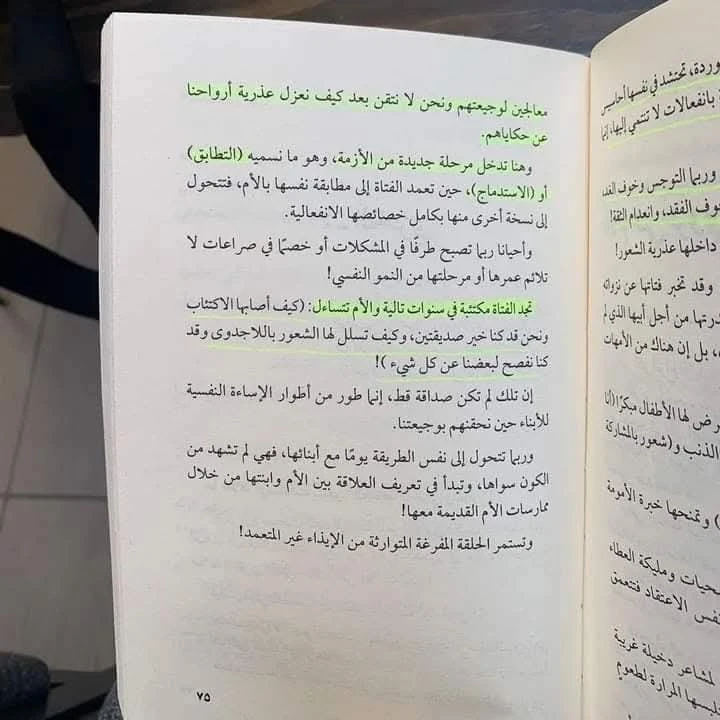 وردة، تحتشد في نفسها أحاسيس
بانفعالات لا تنتمي إليها، إنها
وربما التوجس وخوف الفقد
خوف الفقد، وانعدام الثقة!
داخلها عذرية الشعور!
وقد تخبر فتاتها عن نزواته
من أجل أبيها الذي لم
بل إن هناك من الأمهات
لها الأطفال مبكرًا (أنا
الذنب و(شعور بالمشاركة
وتمنحها خبرة الأمومة
ومليكة العطاء
نفس الاعتقاد فتتعمق
لمشاعر دخيلة غريبة
المرارة لطعوم
معالجين لوجيعتهم ونحن لا نتقن بعد كيف نعزل عذرية أرواحنا
عن حكاياهم.
وهنا تدخل مرحلة جديدة من الأزمة، وهو ما نسميه (التطابق)
أو (الاستدماج)، حين تعمد الفتاة إلى مطابقة نفسها بالأم، فتتحول
إلى نسخة أخرى منها بكامل خصائصها الانفعالية.
وأحيانا ربما تصبح طرفًا في المشكلات أو خصمًا في صراعات لا
تلائم عمرها أو مرحلتها من النمو النفسي!
تجد الفتاة مكتئبة في سنوات تالية والأم تتساءل: (كيف أصابها الاكتئاب
ونحن قد كنا خير صديقتين، وكيف تسلل لها الشعور باللاجدوى وقد
كنا نفصح لبعضنا عن كل شيء )!
إن تلك لم تكن صداقة قط، إنما طور من أطوار الإساءة النفسية
للأبناء حين نحقنهم بوجيعتنا.
وربما تتحول إلى نفس الطريقة يومًا مع أبنائها، فهي لم تشهد من
الكون سواها، وتبدأ في تعريف العلاقة بين الأم وابنتها من خلال
ممارسات الأم القديمة معها!
وتستمر الحلقة المفرغة المتوارثة من الإيذاء غير المتعمد!
٧٥